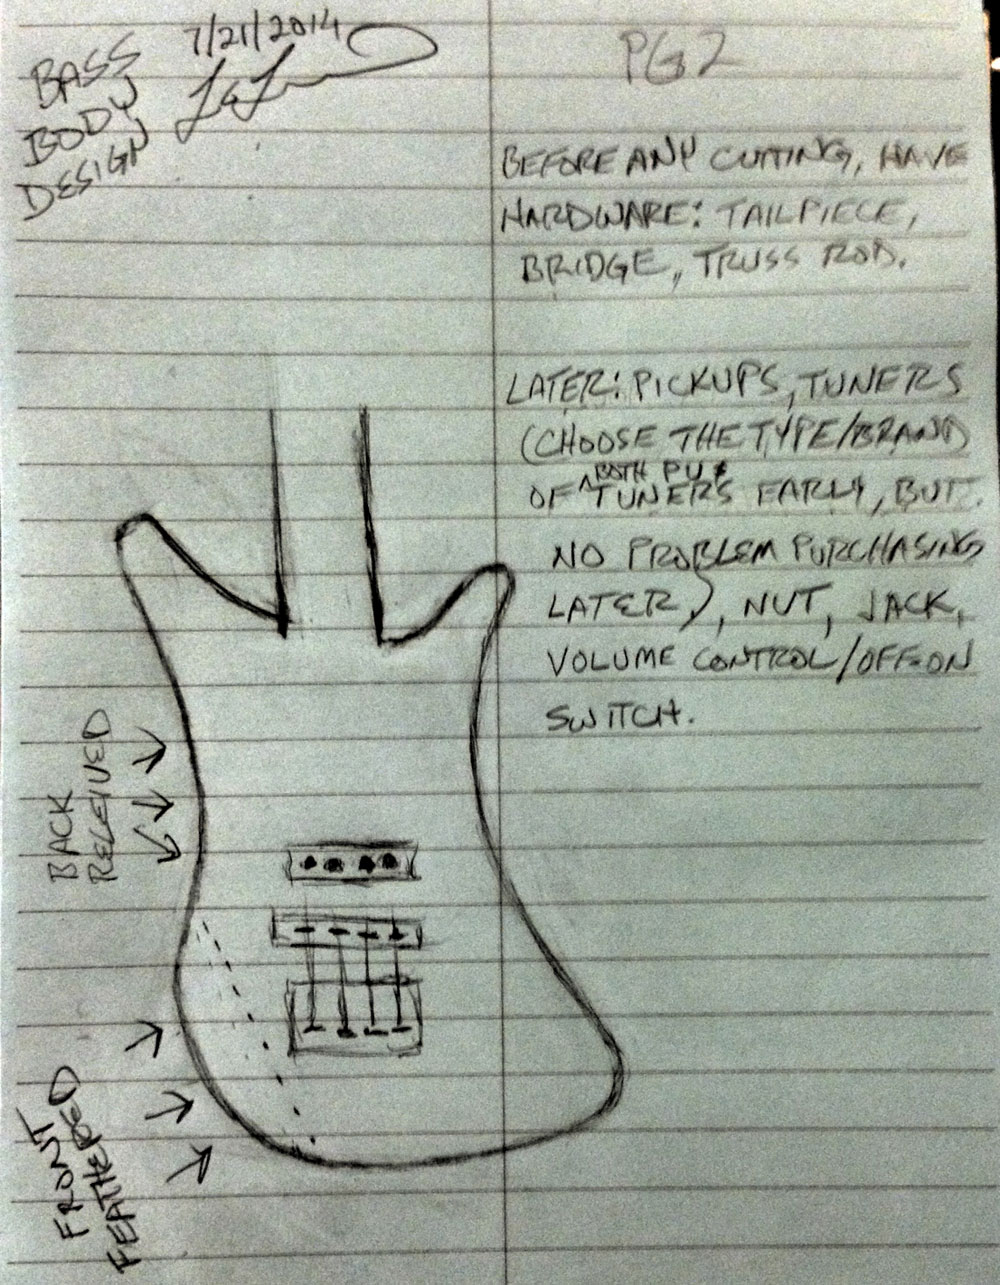 BASS
BODY
DESIGN
7/21/2014
PG2
BEFORE ANY CUTTING, HAVE
HARDWARE: TAILPIECE,
BRIDGE, TRUSS ROD.
LATER: PICKUPS, TUNERS
(CHOOSE THE TYPE/BRAND
OF ^BOTH PU & TUNERS EARLY, BUT
NO PROBLEM PURCHASING
LATER), NUT, JACK,
VOLUME CONTROL/OFF-ON
SWITCH.
BACK
RELEIVED
FRONT
FEATHERED